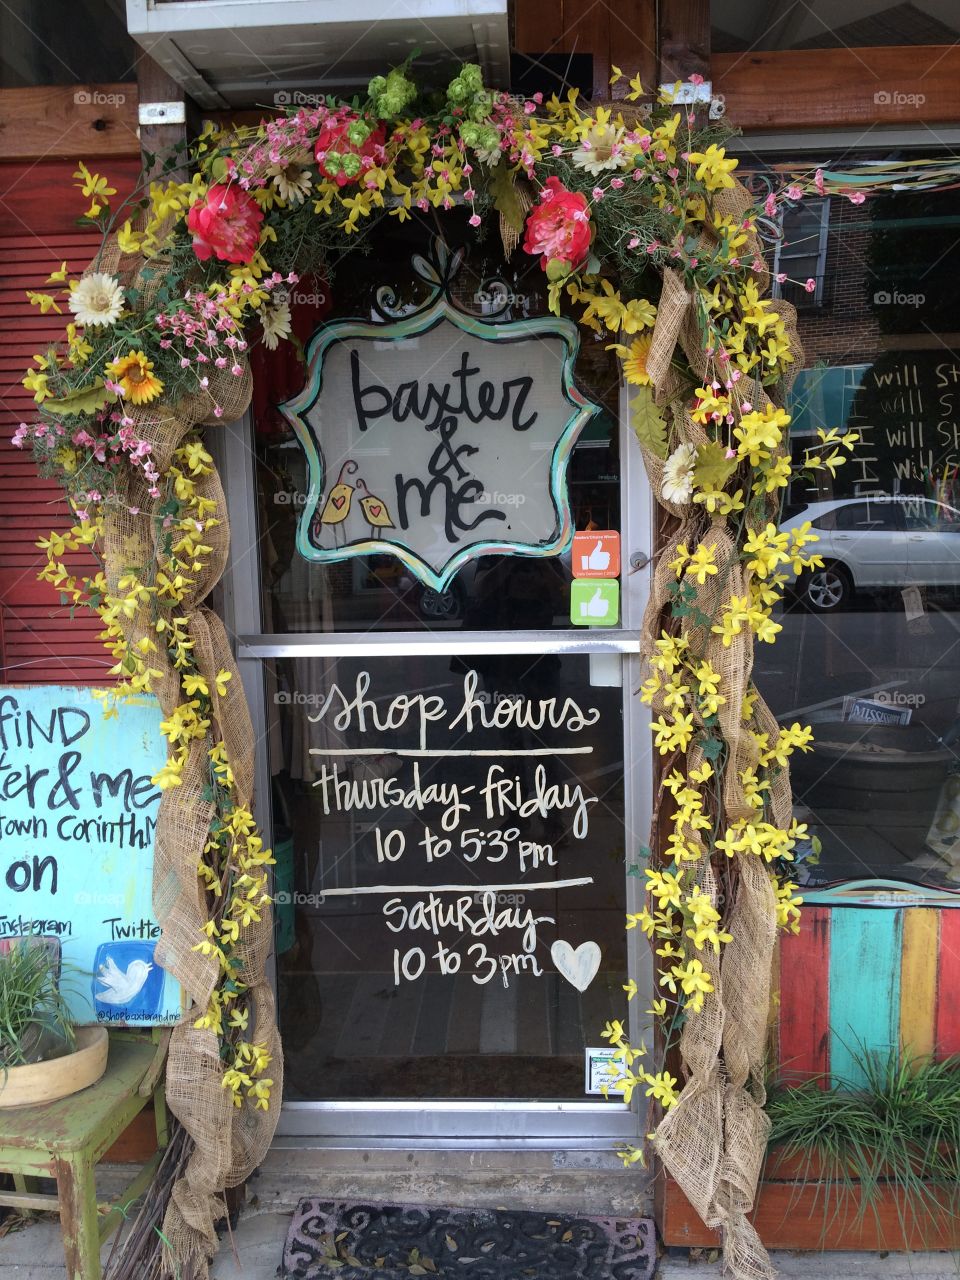 baxter
&
me
shop hours
thursday-friday
10 to 5:30 pm
saturday
10 to 3pm
find
ter & me
town Corinth, M
on
Instagram
Twitter
@shopbaxterandme
I will St
I will S
I will S
I will S
I wi
Readers' Choice Winner
MISSISSIPPI
foap